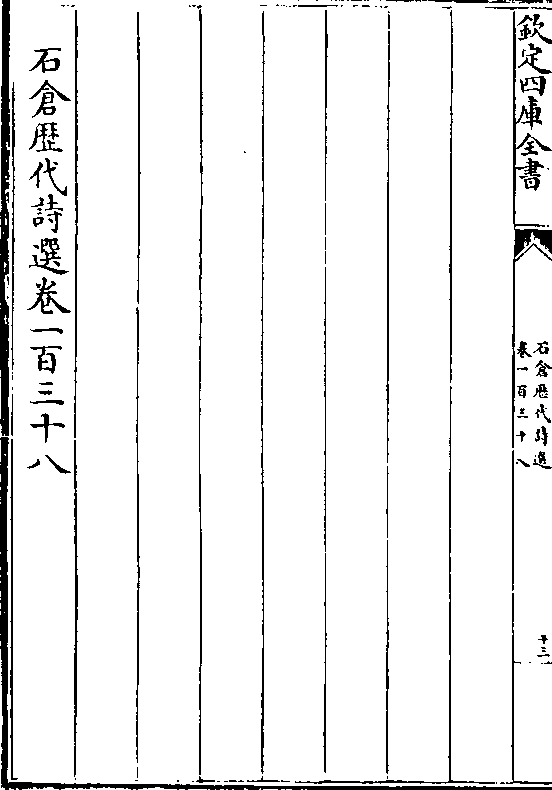 欽定四庫全書
石倉歴代詩選
卷一百三十八
石倉歴代詩選卷一百三十八